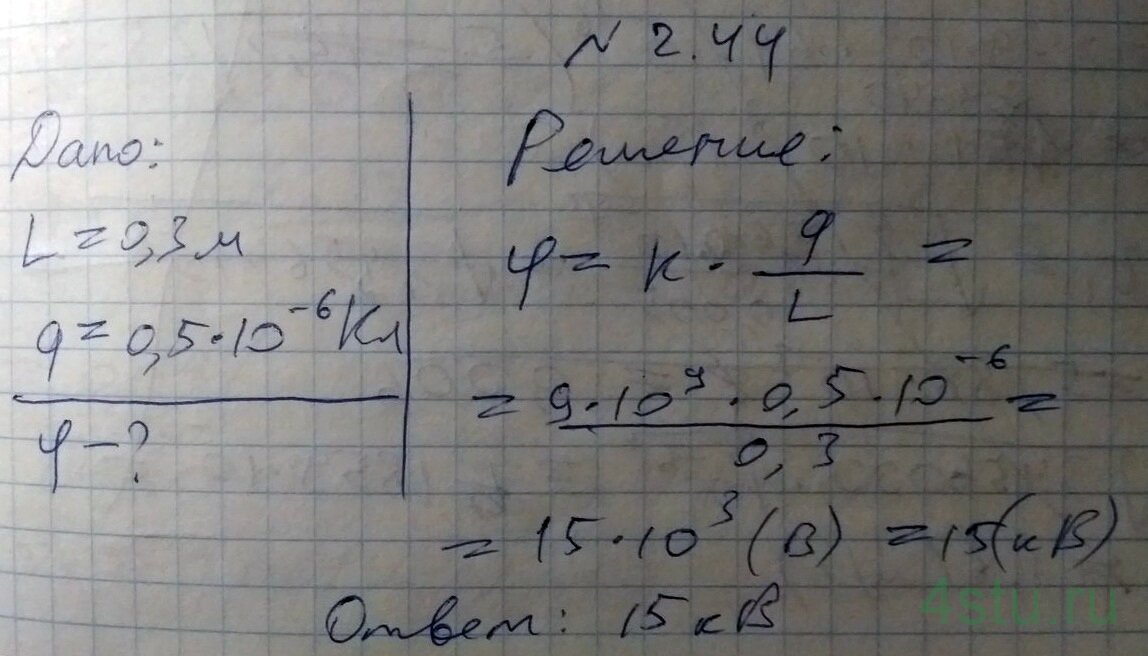 N 2.44
Дано:
L = 0,3 м
q = 0,5·10⁻⁶ Кл
φ – ?
Решение:
φ = k · q / L =
= 9·10⁹ · 0,5·10⁻⁶ / 0,3 =
= 15·10³ (В) = 15 (кВ)
Ответ: 15 кВ
4stu.ru